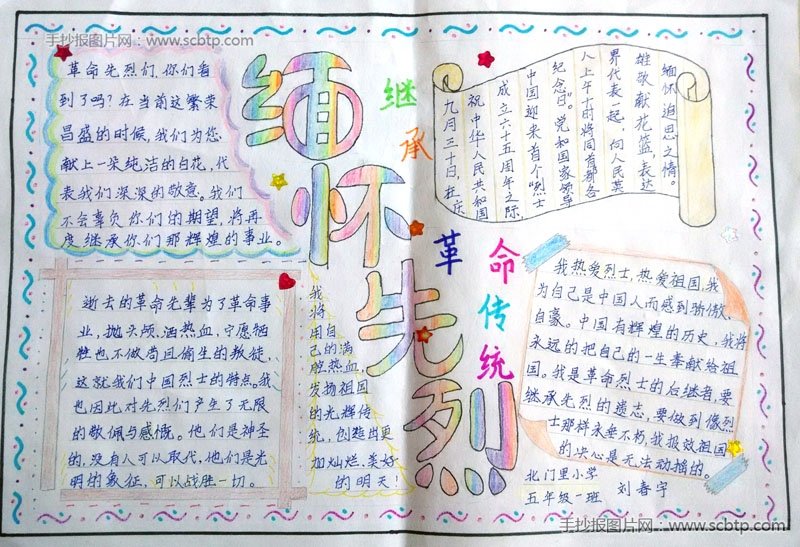 手抄报图片网：www.scbtp.com
缅
怀
先
烈
继
承
革
命
传
统
革命先烈们，你们看
到了吗？在当前这繁荣
昌盛的时候，我们为您
献上一朵纯洁的白花，代
表我们深深的敬意。我们
不会辜负你们的期望，将再
度继承你们那辉煌的事业。
九月三十日，在庆
祝中华人民共和国
成立六十五周年之际，
中国迎来首个“烈士
纪念日”。党和国家领导
人上午十时将同首都各
界代表一起，向人民英
雄敬献花篮，表达
缅怀追思之情。
逝去的革命先辈为了革命事
业，抛头颅、洒热血，宁愿牺
牲也不做苟且偷生的叛徒，
这就我们中国烈士的特点。我
也因此对先烈们产生了无限
的敬佩与感慨。他们是神圣
的，没有人可以取代，他们是光
明的象征，可以战胜一切。
我
将
用自
己的满
腔热血，
发扬祖国
的光辉传
统，创造出更
加灿烂、美好
的明天！
我热爱烈士，热爱祖国，我
为自己是中国人而感到骄傲、
自豪。中国有辉煌的历史，我将
永远的把自己的一生奉献给祖
国。我是革命烈士的后继者，要
继承先烈的遗志，要做到像烈
士那样永垂不朽，我报效祖国
的决心是无法动摇的。
北门里小学
五年级一班 刘春宇
手抄报图片网：www.scbtp.com